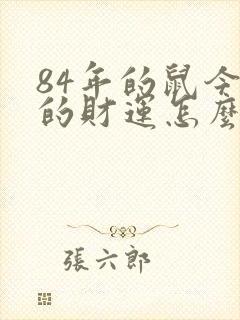 84年的鼠今
的財運怎麼
張六郎